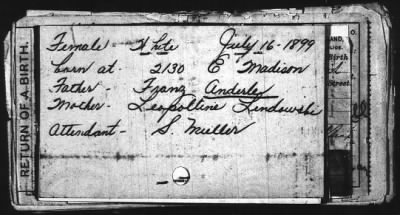 RETURN OF A BIRTH.
Female - White July 16 - 1899
born at - 2130 E Madison
Father - Franz Anderle
Mother - Leopoltine Lendowski
Attendant - S. Mueller